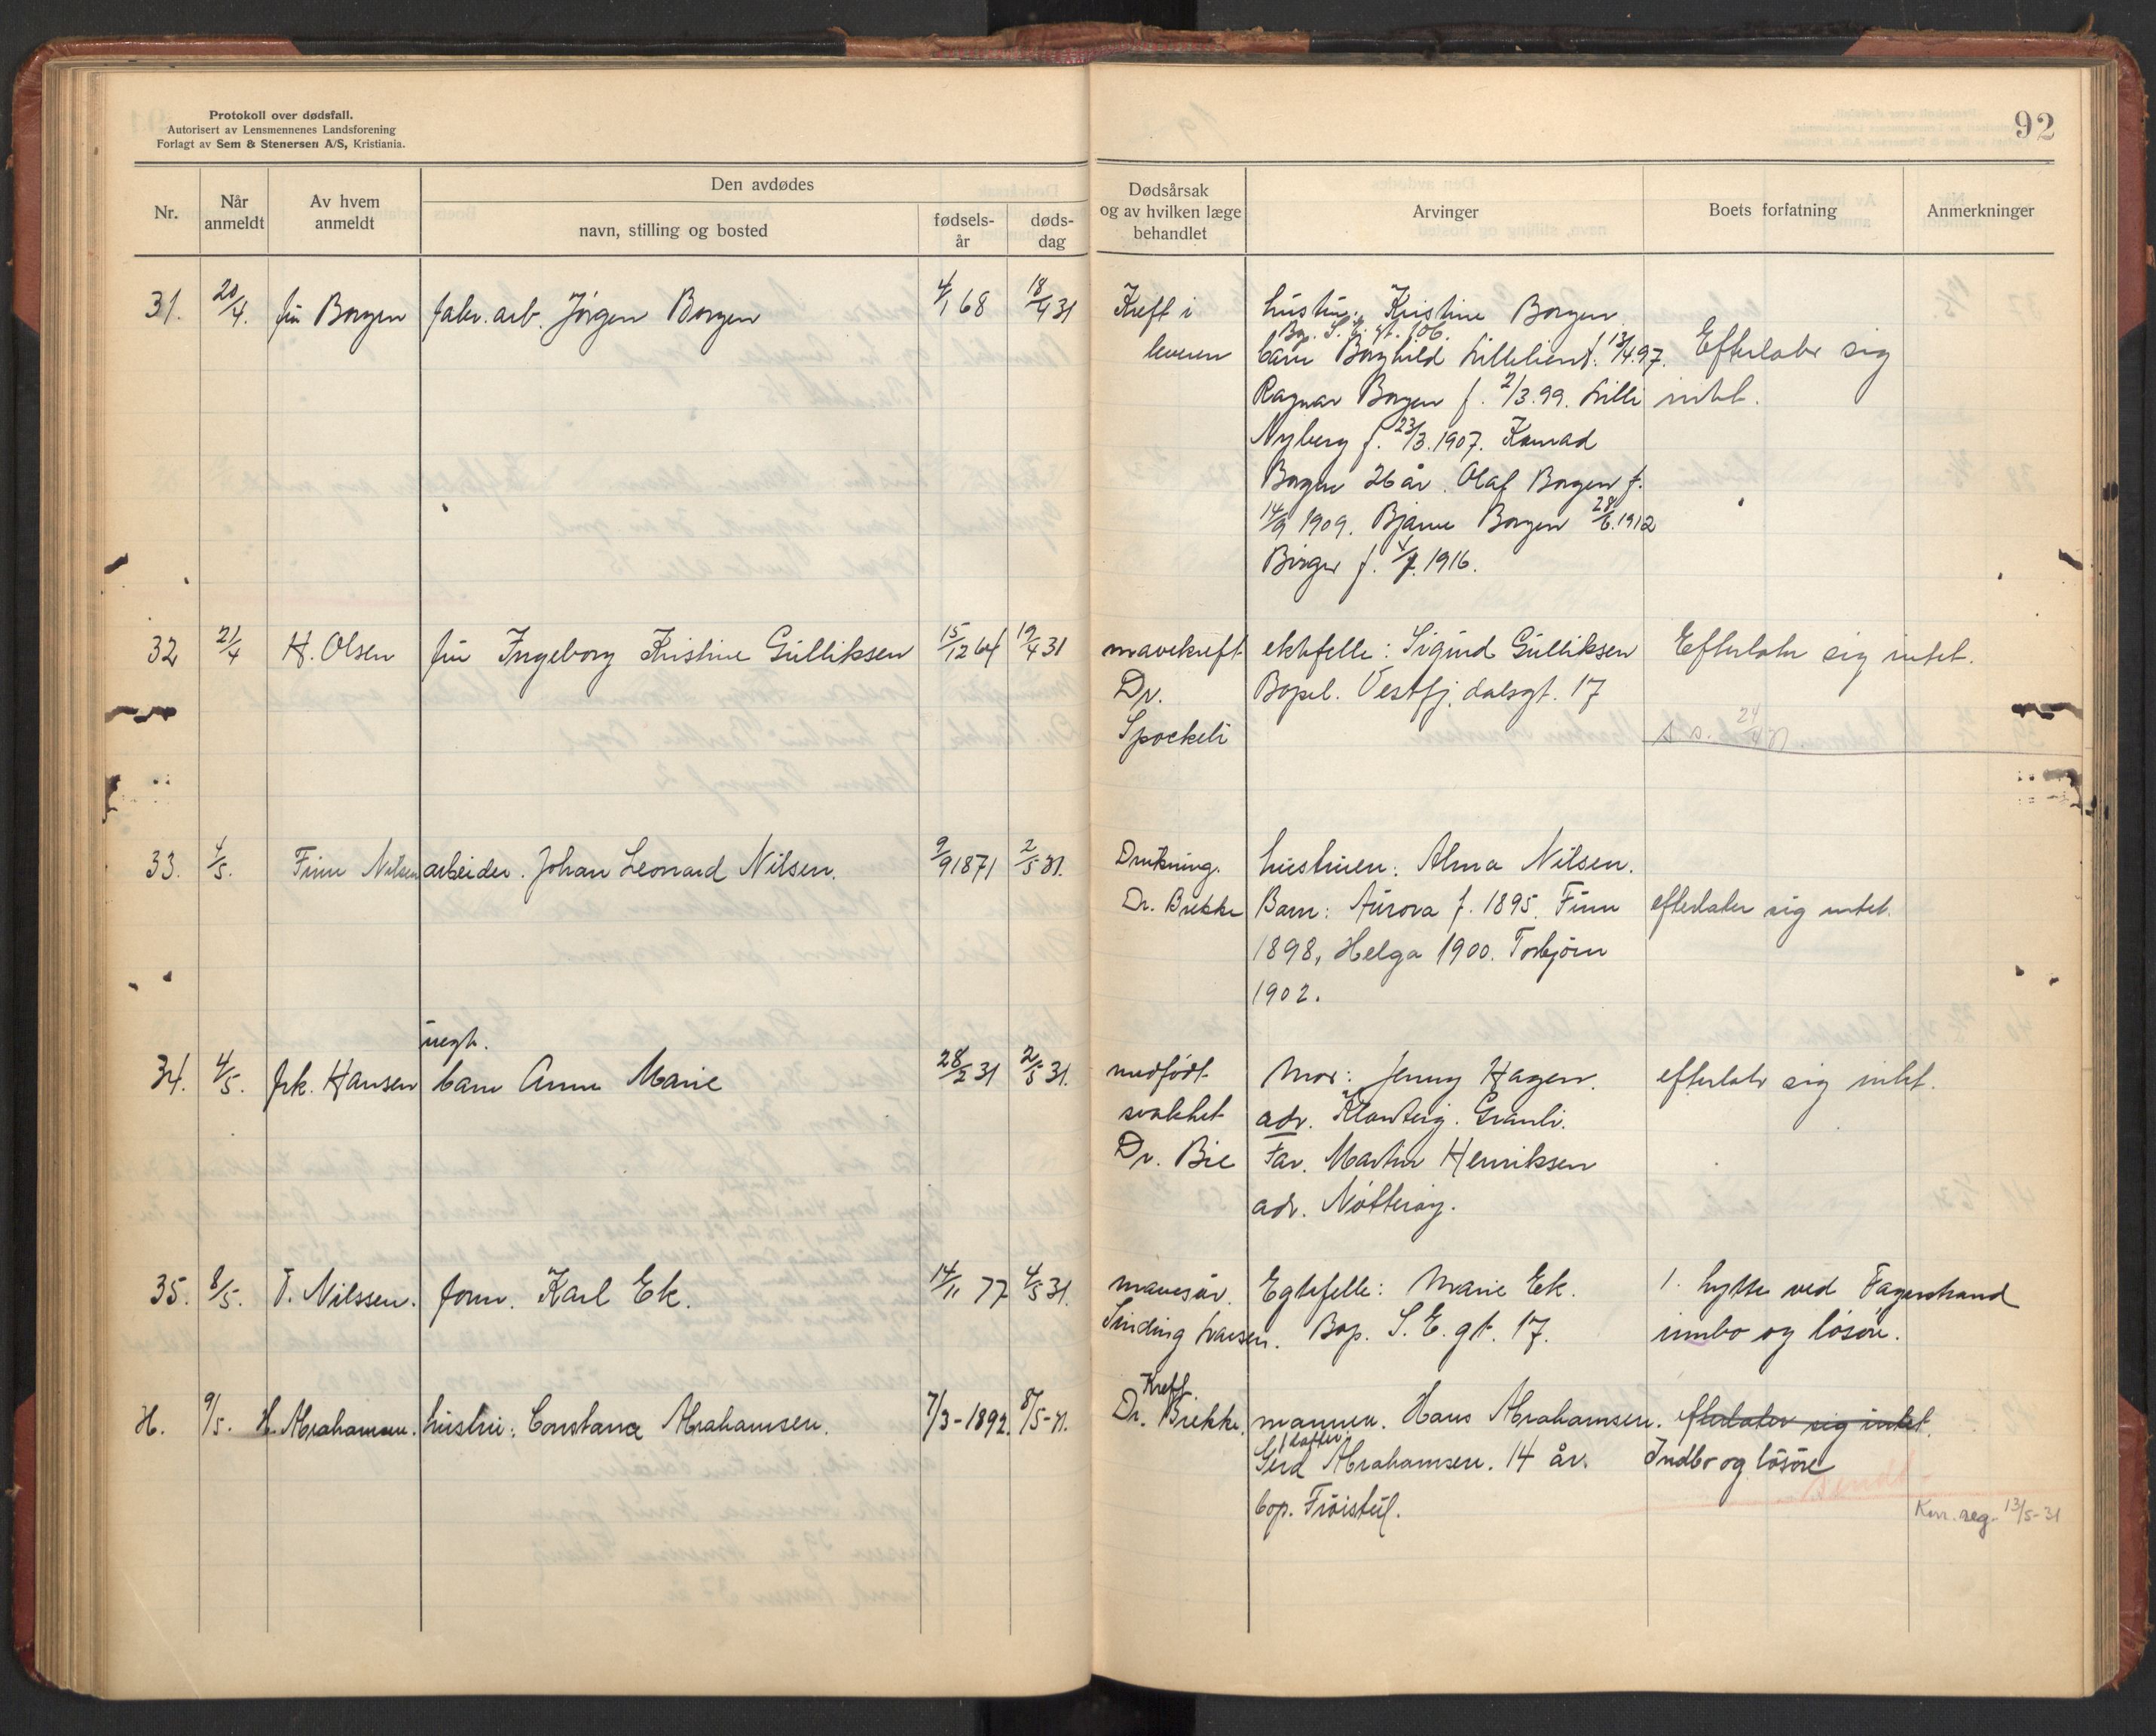 Protokoll over dødsfall.
Autorisert av Lensmennenes Landsforening
Forlagt av Sem & Stenersen A/S, Kristiania.
92
Nr.
Når anmeldt
Av hvem anmeldt
Den avdødes
navn, stilling og bosted
fødsels-år
døds-dag
Dødsårsak og av hvilken læge behandlet
Arvinger
Boets forfatning
Anmerkninger
31. 20/4. fru Borgen fabr. arb. Jörgen Borgen 4/1 68 18/4 31 Kreft i hustru, Kristine Borgen
Bop. S. E. gt. 106.
leveren barn Borghild Lillelien f. 13/4.97. Efterlater sig
Ragnar Borgen f. 2/3.99. Lilli intet.
Nyberg f. 23/3.1907. Konrad
Borgen 26 år. Olaf Borgen f.
14/9 1909. Bjarne Borgen 28/6.1912
Birger f. 4/7.1916.
32 21/4 H. Olsen fru Ingeborg Kristine Gulliksen 15/12 64 19/4 31 mavekreft ektefelle: Sigurd Gulliksen Efterlater sig intet.
Dr. Bopel. Vestfj. dalsgt. 17
Spockeli s s. 24/4
33. 4/5. Finn Nilsen arbeider. Johan Leonard Nilsen. 9/9 1871 2/5 31. Drukning. hustruen: Alma Nilsen.
Dr. Brekke Barn: Aurora f. 1895. Finn efterlater sig intet.
1898, Helga 1900. Torbjörn
1902.
uegt.
34. 4/5. frk. Hansen barn Anne Marie 28/2 31 2/5 31. medfödt Mor: Jenny Hagen. efterlater sig intet.
svakhet adr. Granli.
Dr. Bie Far. Martin Henriksen
adr. Nötteröy.
35. 8/5. T. Nilssen. form. Karl Ek. 14/11 77 4/5 31. mavesår. Egtefelle: Marie Ek. 1. hytte ved Fagerstrand
Sinding Larsen. Bop. S. E. gt. 17. innbo og lösöre.
Kreft.
H. 9/5. H. Abrahamsen. hustru: Constance Abrahamsen. 7/3-1892. 8/5-31. Dr. Brekke. mannen. Hans Abrahamsen. efterlater sig intet.
1 datter.
Gerd Abrahamsen. 14 år. Indbo og lösöre
sendt
bop. Fröistul. Kon. reg. 13/5-31